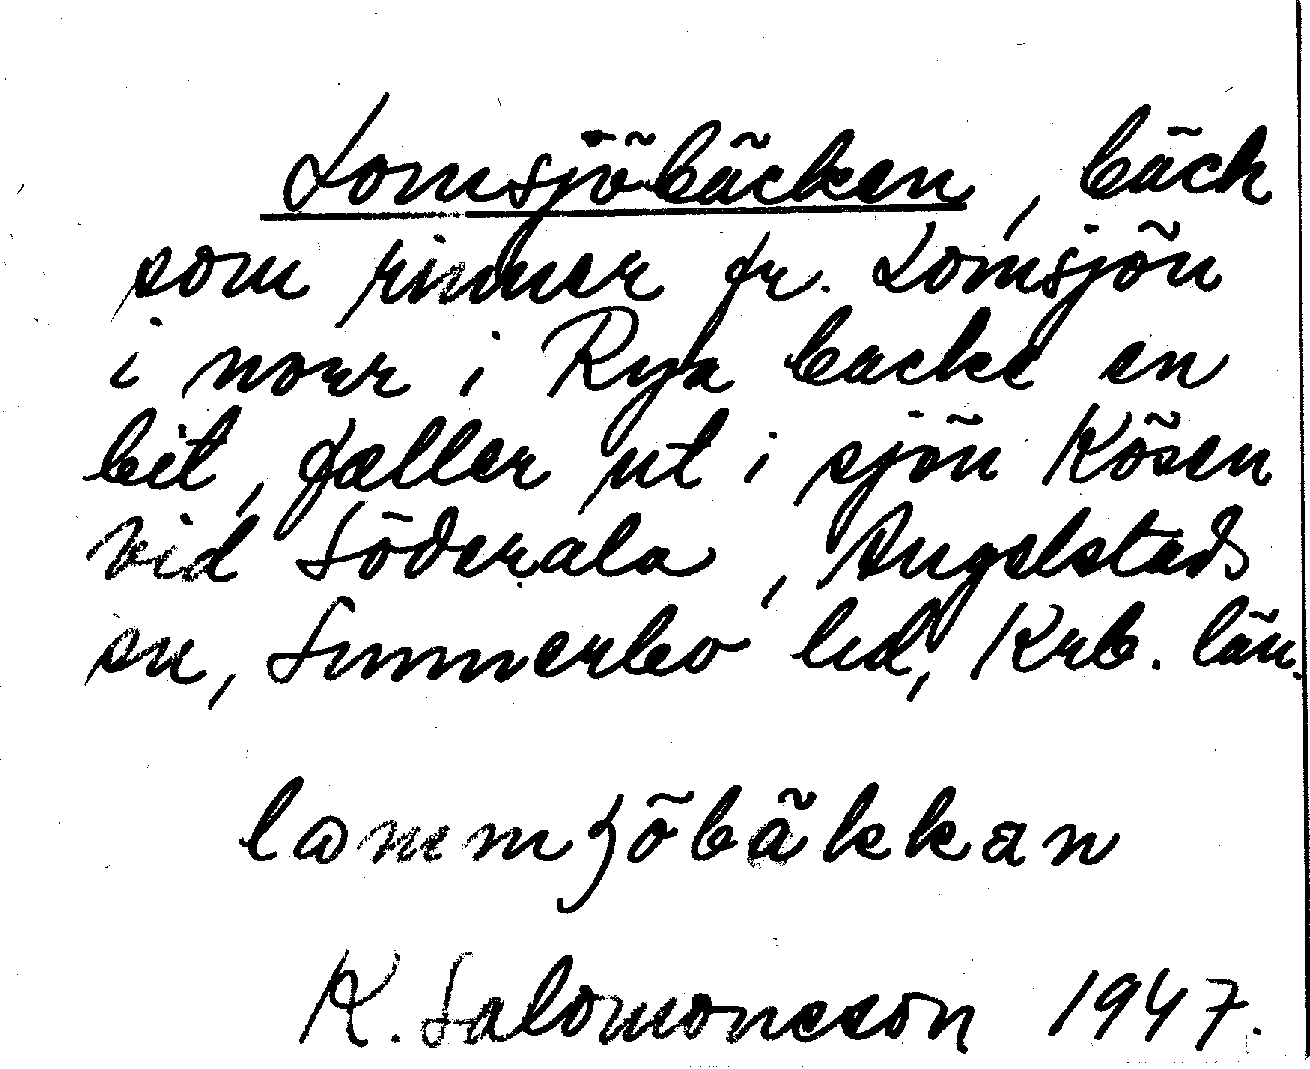 Lomsjöbäcken, bäck
som rinner fr. Lomsjön
i norr i Rya backe en
bit, faller ut i sjön Kösen
vid Söderala, Angelstads
sn, Sunnerbo hd, Krb. län.
lommjöbäkkan
K. Salomonsson 1947.